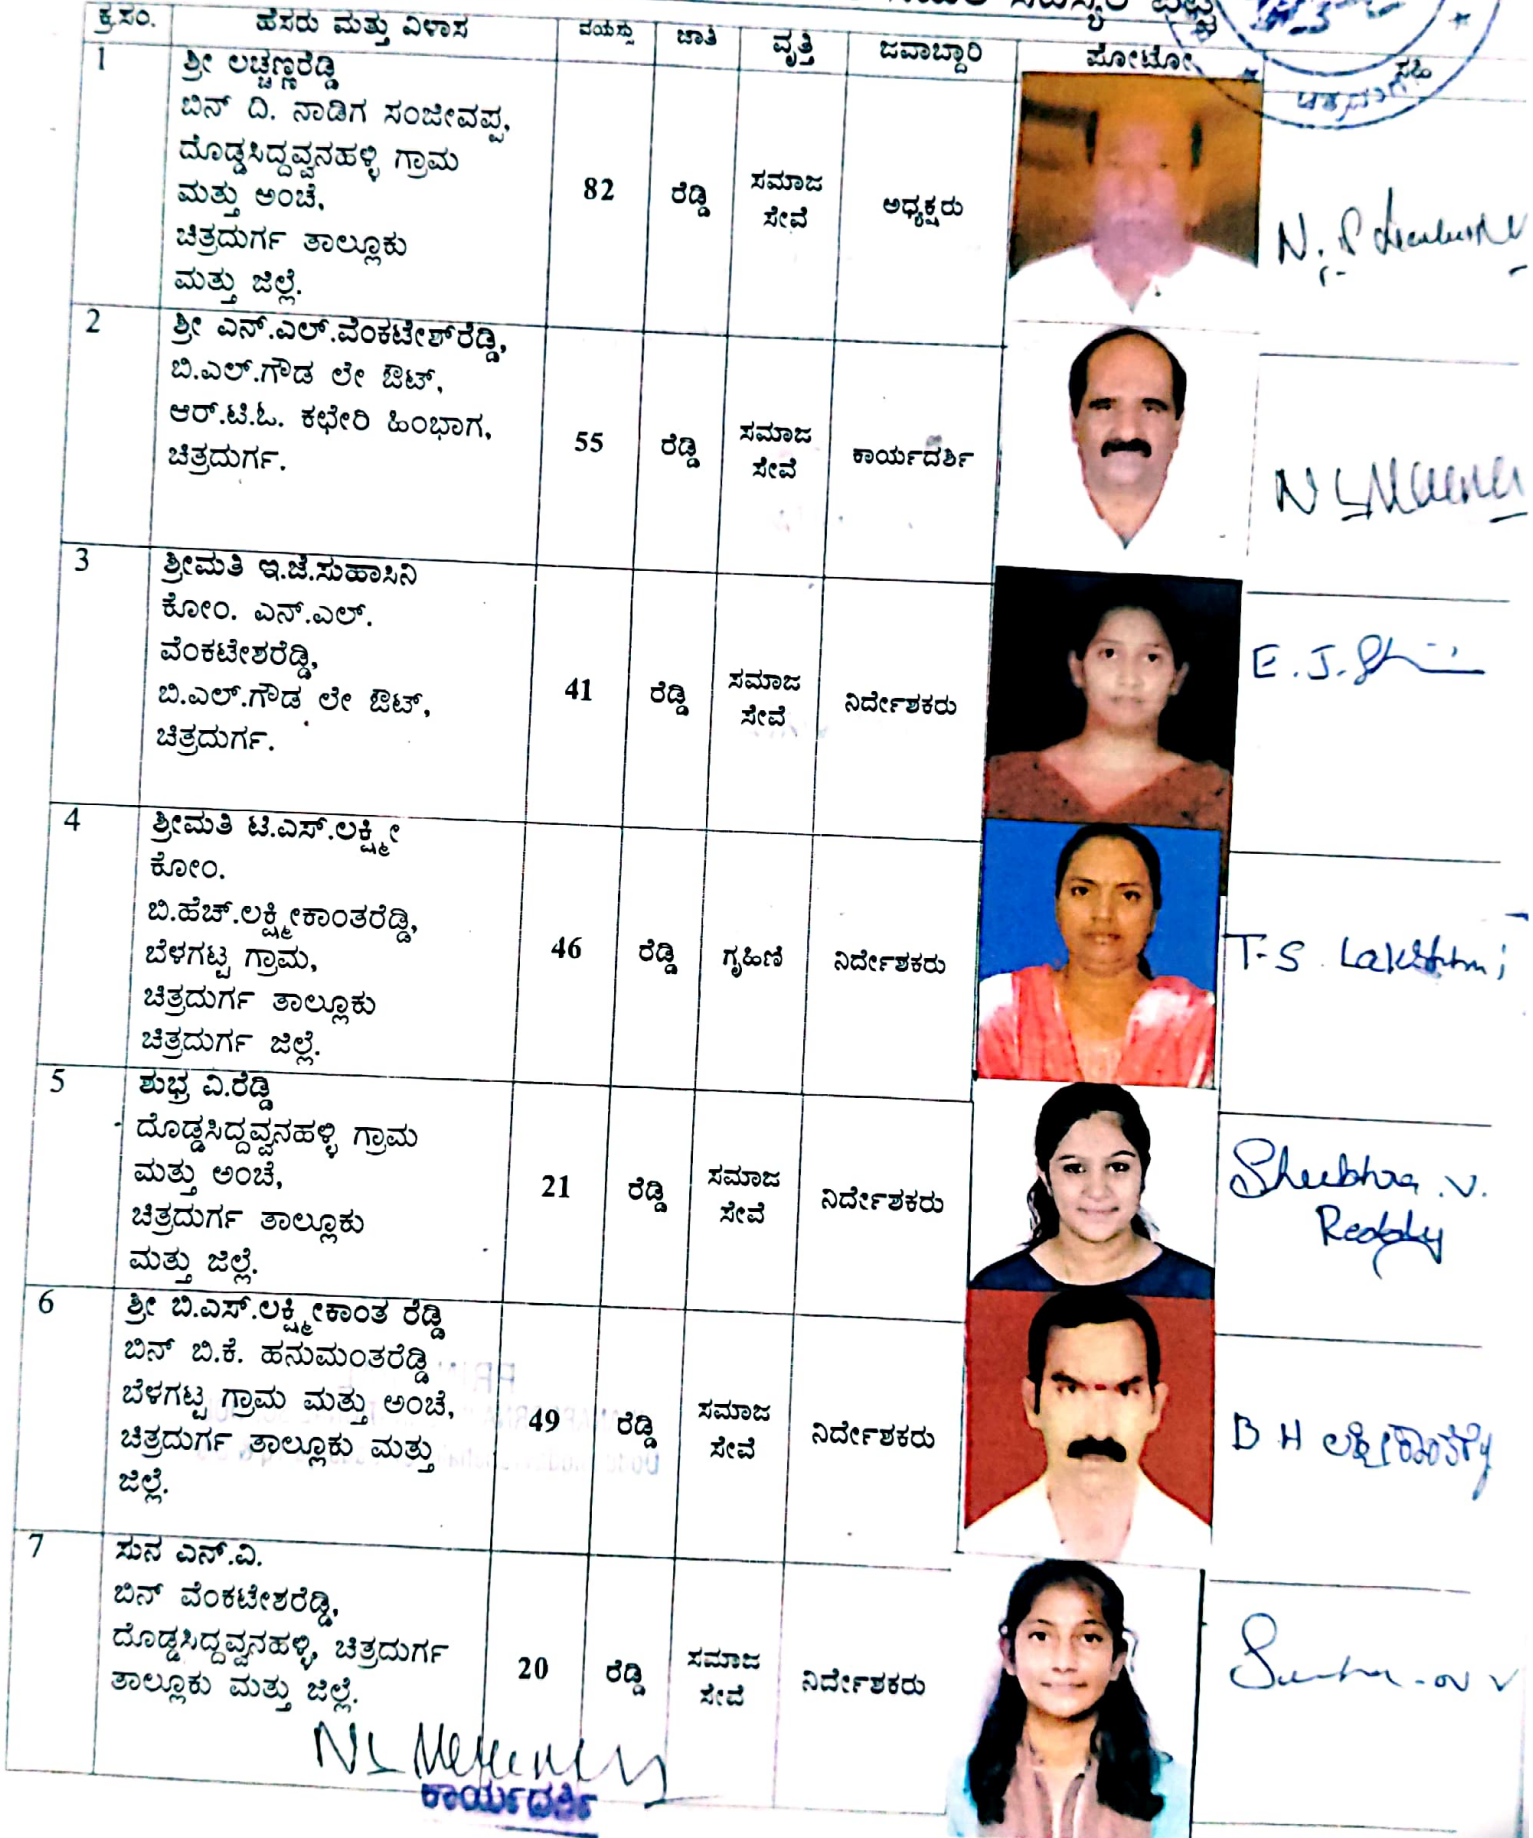 ಕ್ರ.ಸಂ. ಹೆಸರು ಮತ್ತು ವಿಳಾಸ ವಯಸ್ಸು ಜಾತಿ ವೃತ್ತಿ ಜವಾಬ್ದಾರಿ ಪೋಟೋ ಸಹಿ
1 ಶ್ರೀ ಲಚ್ಚಣ್ಣರೆಡ್ಡಿ
ಬಿನ್ ದಿ. ನಾಡಿಗ ಸಂಜೀವಪ್ಪ,
ದೊಡ್ಡಸಿದ್ದವ್ವನಹಳ್ಳಿ ಗ್ರಾಮ
ಮತ್ತು ಅಂಚೆ,
ಚಿತ್ರದುರ್ಗ ತಾಲ್ಲೂಕು
ಮತ್ತು ಜಿಲ್ಲೆ.
82 ರೆಡ್ಡಿ ಸಮಾಜ
ಸೇವೆ
ಅಧ್ಯಕ್ಷರು
2 ಶ್ರೀ ಎನ್.ಎಲ್.ವೆಂಕಟೇಶ್‌ರೆಡ್ಡಿ,
ಬಿ.ಎಲ್.ಗೌಡ ಲೇ ಔಟ್,
ಆರ್.ಟಿ.ಓ. ಕಛೇರಿ ಹಿಂಭಾಗ,
ಚಿತ್ರದುರ್ಗ.
55 ರೆಡ್ಡಿ ಸಮಾಜ
ಸೇವೆ
ಕಾರ್ಯದರ್ಶಿ
3 ಶ್ರೀಮತಿ ಇ.ಜೆ.ಸುಹಾಸಿನಿ
ಕೋಂ. ಎನ್.ಎಲ್.
ವೆಂಕಟೇಶರೆಡ್ಡಿ,
ಬಿ.ಎಲ್.ಗೌಡ ಲೇ ಔಟ್,
ಚಿತ್ರದುರ್ಗ.
41 ರೆಡ್ಡಿ ಸಮಾಜ
ಸೇವೆ
ನಿರ್ದೇಶಕರು
E. J.
4 ಶ್ರೀಮತಿ ಟಿ.ಎಸ್.ಲಕ್ಷ್ಮೀ
ಕೋಂ.
ಬಿ.ಹೆಚ್.ಲಕ್ಷ್ಮೀಕಾಂತರೆಡ್ಡಿ,
ಬೆಳಗಟ್ಟ ಗ್ರಾಮ,
ಚಿತ್ರದುರ್ಗ ತಾಲ್ಲೂಕು
ಚಿತ್ರದುರ್ಗ ಜಿಲ್ಲೆ.
46 ರೆಡ್ಡಿ ಗೃಹಿಣಿ ನಿರ್ದೇಶಕರು
T-S. Lakshmi
5 ಶುಭ್ರ ವಿ.ರೆಡ್ಡಿ
ದೊಡ್ಡಸಿದ್ದವ್ವನಹಳ್ಳಿ ಗ್ರಾಮ
ಮತ್ತು ಅಂಚೆ,
ಚಿತ್ರದುರ್ಗ ತಾಲ್ಲೂಕು
ಮತ್ತು ಜಿಲ್ಲೆ.
21 ರೆಡ್ಡಿ ಸಮಾಜ
ಸೇವೆ
ನಿರ್ದೇಶಕರು
Shubhra . V.
Reddy
6 ಶ್ರೀ ಬಿ.ಎಸ್.ಲಕ್ಷ್ಮೀಕಾಂತ ರೆಡ್ಡಿ
ಬಿನ್ ಬಿ.ಕೆ. ಹನುಮಂತರೆಡ್ಡಿ
ಬೆಳಗಟ್ಟ ಗ್ರಾಮ ಮತ್ತು ಅಂಚೆ,
ಚಿತ್ರದುರ್ಗ ತಾಲ್ಲೂಕು ಮತ್ತು
ಜಿಲ್ಲೆ.
49 ರೆಡ್ಡಿ ಸಮಾಜ
ಸೇವೆ
ನಿರ್ದೇಶಕರು
B H
7 ಸುನ ಎನ್.ವಿ.
ಬಿನ್ ವೆಂಕಟೇಶರೆಡ್ಡಿ,
ದೊಡ್ಡಸಿದ್ದವ್ವನಹಳ್ಳಿ, ಚಿತ್ರದುರ್ಗ
ತಾಲ್ಲೂಕು ಮತ್ತು ಜಿಲ್ಲೆ.
20 ರೆಡ್ಡಿ ಸಮಾಜ
ಸೇವೆ
ನಿರ್ದೇಶಕರು
ಕಾರ್ಯದರ್ಶಿ